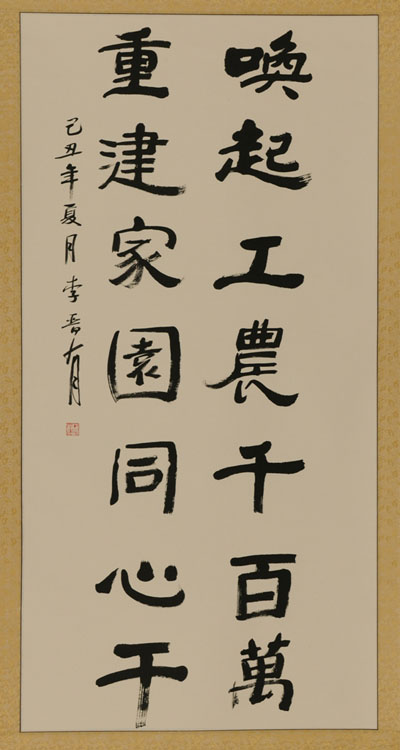 喚起工農千百萬
重建家園同心干
己丑年夏月李晋有